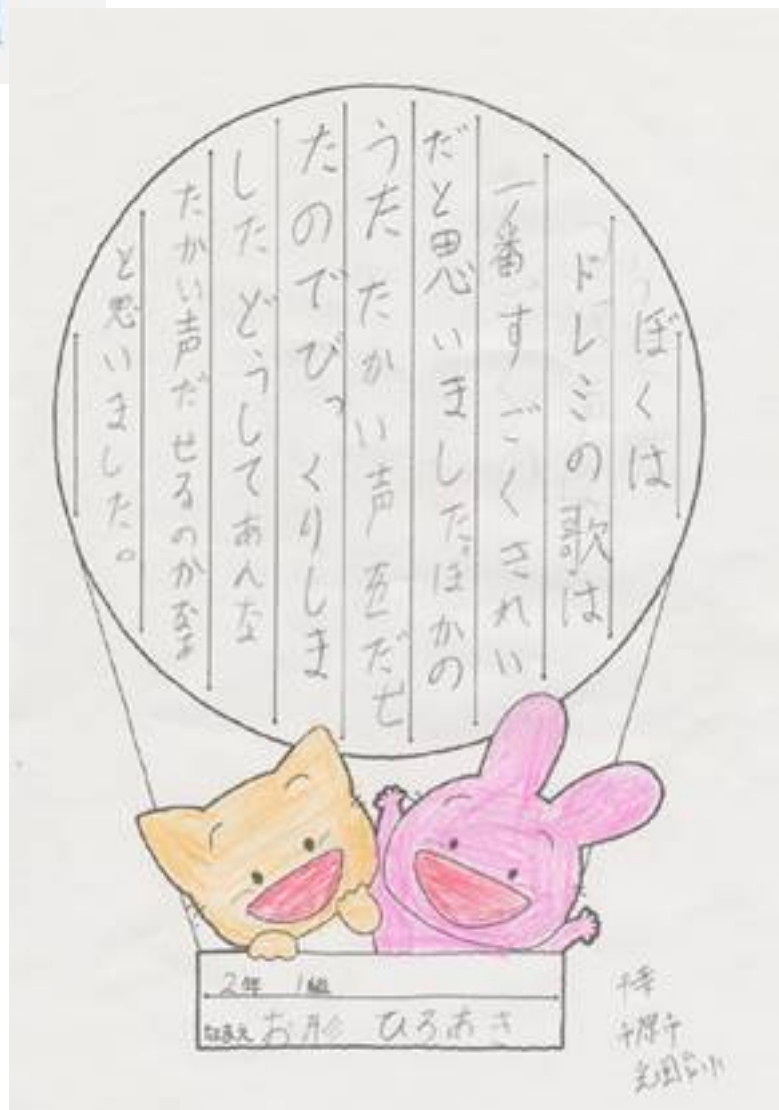 ぼくは
ドレミの歌は
一番すごくきれい
だと思いました。ほかの
うた たかい声 だせ
たのでびっくりしま
した どうしてあんな
たかい声だせるのかなあ
と思いました。
2年 1組
なまえ ひろあき